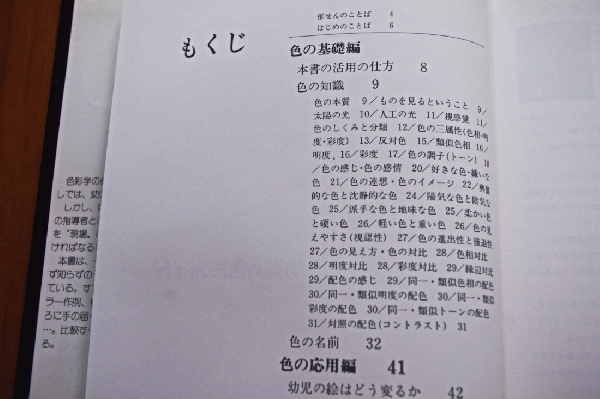 もくじ
推せんのことば 4
はじめのことば 6
色の基礎編
本書の活用の仕方 8
色の知識 9
色の本質 9/ものを見るということ 9/
太陽の光 10/人工の光 11/視感覚 11/
色のしくみと分類 12/色の三属性(色相・明
度・彩度) 13/反対色 15/類似色相 16/
明度, 16/彩度 17/色の調子(トーン) 18
/色の感じ・色の感情 20/好きな色・嫌いな
色 21/色の連想・色のイメージ 22/興奮
的な色と沈静的な色 24/陽気な色と陰気な
色 25/派手な色と地味な色 25/柔かい色
と硬い色 26/軽い色と重い色 26/色の見
えやすさ(視認性) 27/色の進出性と後退性
27/色の見え方・色の対比 28/色相対比
28/明度対比 28/彩度対比 29/縁辺対比
29/配色の感じ 29/同一・類似色相の配色
30/同一・類似明度の配色 30/同一・類似
彩度の配色 30/同一・類似トーンの配色
31/対照の配色(コントラスト) 31
色の名前 32
色の応用編 41
幼児の絵はどう変るか 42
色彩学の
しては、幼
しかし、
の指導者と
を"現場。
ければなる
本書は、
ず知らずの
ている。す
ラー作例、
ろに手の届
…。比較す
る。